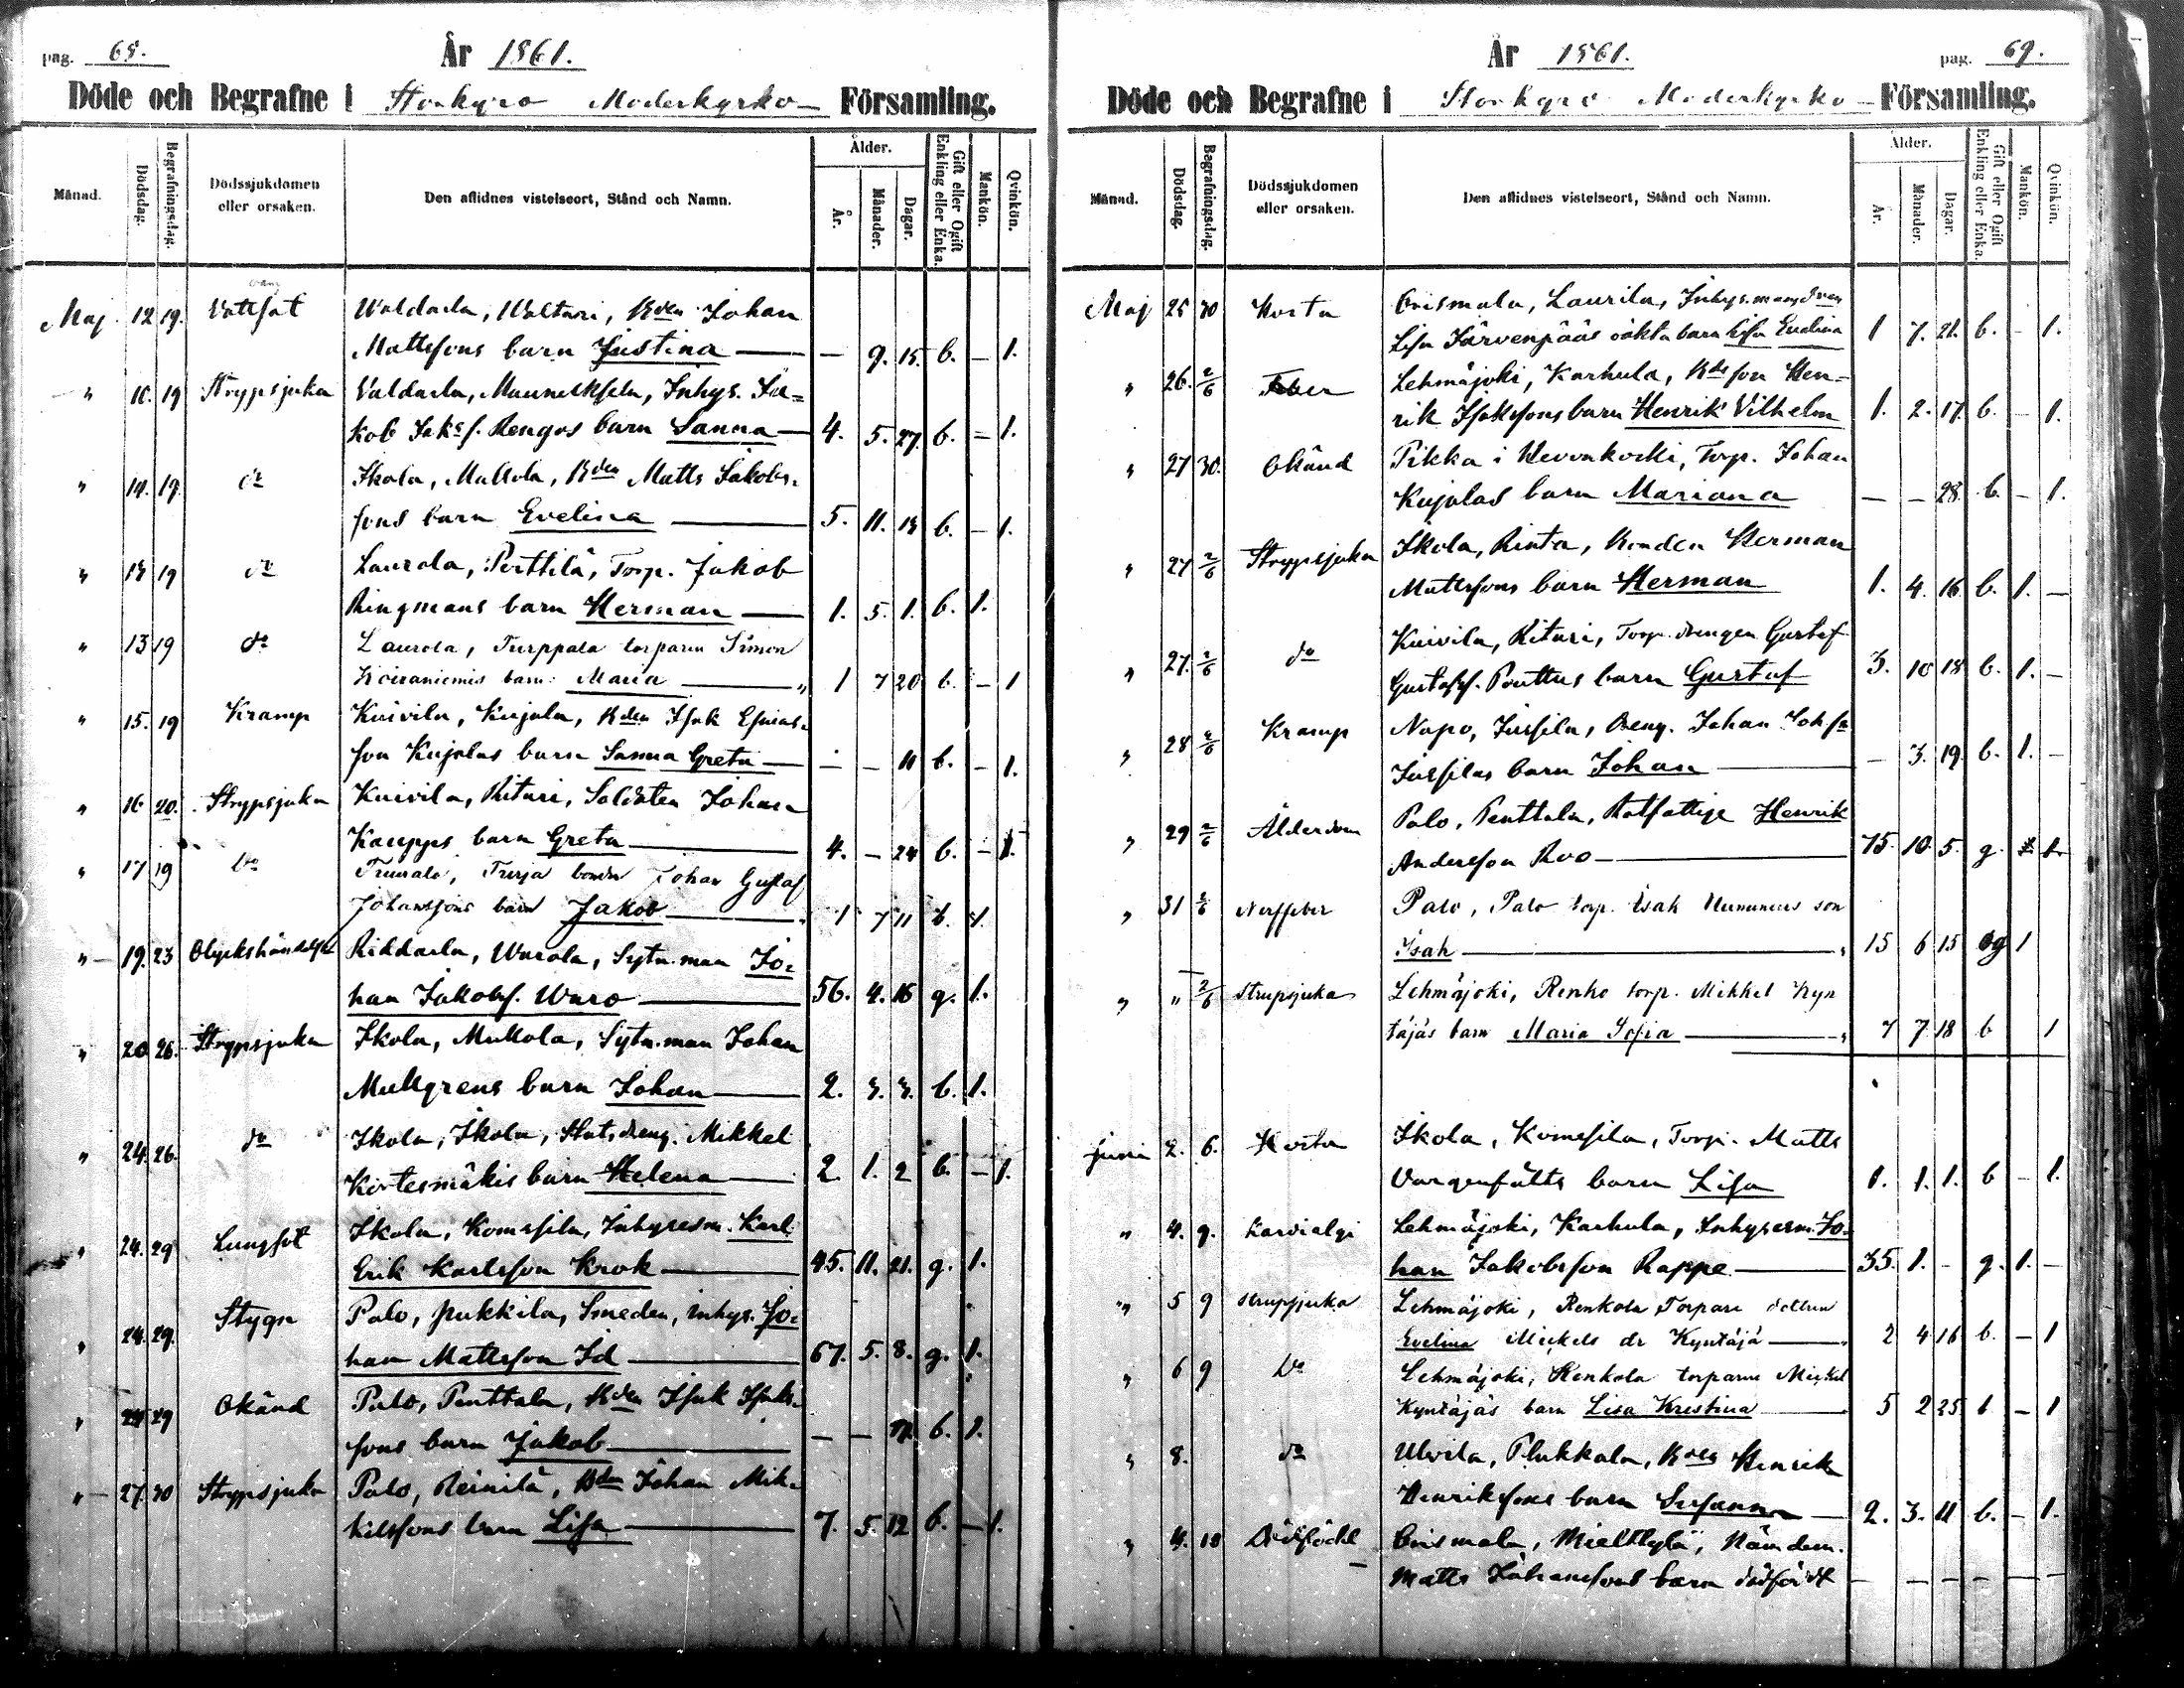 pag. 68.
År 1861.
Döde och Begrafne i Storkyro Moderkyrko- Församling.
Månad.
Dödsdag.
Begrafningsdag.
Dödssjukdomen
eller orsaken.
Den aflidnes vistelseort, Stånd och Namn.
Ålder.
År.
Månader.
Dagar.
Gift eller Ogift
Enkling eller Enka.
Mankön.
Qvinkön.
Maj 12 19. Vattsot Waldarla, Waltari, Bden Johan
Mattssons barn Justina — — 9. 15. b. — 1.
" 10. 19 Strypsjuka Valdarla, Inhys. Ja=
kob Jaks. Rengos barn Sanna — 4. 5. 27. b. — 1.
" 14. 19. do Ikola, Mullola, Bden Matts Jakobs-
sons barn Evelina — 5. 11. 13 b. — 1.
" 13 19 do Laurola, Perttilä, Torp. Jakob
Ringmans barn Herman — 1. 5. 1. b. 1.
" 13 19 do Laurola, Turppala torparen Simon
Koiraniemis barn Maria — " 1 7 20 b. — 1
" 15. 19 Kramp Kuivila, Kujala, Bden Isak Esaias-
son Kujalas barn Sanna Greta — — — 11 b. — 1.
" 16 20. Strypsjuka Kuivila, Rituri, Soldaten Johan
Kaupps barn Greta — 4. — 24 b. — 1.
" 17 19 Do Turja bonden Johan Gustaf
Johanssons barn Jakob — 1 7 11 b. 1.
" 19. 23 Olyckshändelse Riddarla, Wurola, Sytn.man Jo=
han Jakobs. Wuro — 56. 4. 16 g. 1.
" 20 26. Strypsjuka Ikola, Mullola, Sytn.man Johan
Mullgrens barn Johan — 2. 3. 3. b. 1.
" 24. 26. do Ikola, Ikola, Stats dreng. Mikkel
Kortesmäkis barn Helena — 2. 1. 2 b. — 1.
" 24. 29 Lungsot Ikola, Komssila, Inhysesm. Karl
Erik Karlsson Krok — 45. 11. 21. g. 1.
" 24. 29. Stygn Palo, Pukkila, Smeden, inhys. Jo=
han Mattsson Id — 67. 5. 8. g. 1.
" 24 29 Okänd Palo, Penttala, Bden Isak Isaks-
sons barn Jakob — — — b. 1.
" 27. 30 Strypsjuka Palo, Reinilä, Bden Johan Mik-
kelssons barn Lisa — 7. 5. 12 b. — 1.
År 1861.
pag. 69.
Döde och Begrafne i Storkyro Moderkyrko- Församling.
Månad.
Dödsdag.
Begrafningsdag.
Dödssjukdomen
eller orsaken.
Den aflidnes vistelseort, Stånd och Namn.
Ålder.
År.
Månader.
Dagar.
Gift eller Ogift
Enkling eller Enka.
Mankön.
Qvinkön.
Maj 25 30 Hosta Orismala, Laurila, Inhys.mans
Lisa Järvenpääs oäkta barn Lisa Eudina 1 7. 21. b. — 1.
" 26. 2/6 Feber Lehmäjoki, Karhula, Bdeson Hen=
rik Isakssons barn Henrik Vilhelm 1. 2. 17. b. — 1.
" 27 30. Okänd Pikka i Hevonkoski, Torp. Johan
Kujalas barn Mariana — — 28. b. — 1.
" 27 2/6 Strypsjuka Ikola, Rinta, Bonden Herman
Mattssons barn Herman 1. 4. 16. b. 1. —
" 27. 2/6 do Kuivila, Rituri, Torp. drengen Gustaf
Gustafs. Ponttus barn Gustaf 3. 10 18 b. 1. —
" 28 2/6 Kramp Napo, Jussila, Dreng. Johan Johsn
Jussilas barn Johan — — 3. 19. b. 1. —
" 29 2/6 Ålderdom Palo, Penttala, Rotfattige Henrik
Andersson Roo — 75. 10. 5. g. 1.
" 31 2/6 Nerffeber Palo, Palo torp. Isak son
Isak — " 15 6 15 og 1
" " 2/6 Strupsjuka Lehmäjoki, Renko torp. Mikkel Kyn
täjäs barn Maria Sofia — 7 7 18 b 1
Juni 2. 6. Hosta Ikola, Komssila, Torp. Matts
barn Lisa 1. 1. 1. b — 1.
" 4. 9. Kardialgi Lehmäjoki, Karhula, Inhysesm. Jo=
han Jakobsson Rappe — 35. 1. — g. 1. —
" 5 9 Strupsjuka Lehmäjoki, Renkola Torpare dottren
Evelina Mickels dr Kyntäjä — 2 4 16 b. — 1
" 6 9 Do Lehmäjoki, Renkola torparen Mickel
Kyntäjäs barn Lisa Kristina — 5 2 25 b — 1
" 8. do Ulvila, Plukkala, Bden Henrik
Henrikssons barn Susanna — 2. 3. 11 b. — 1.
" 4. 10 Dödfödd Orismala, Nämdem.
Matts Johanssons barn dödfödt — — — — — —